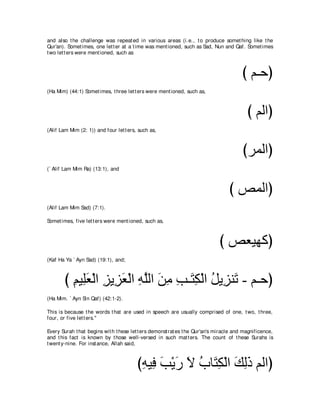 and also the challenge was repeated in various areas (i.e., to produce something like the
Qur'an). Sometimes, one letter at a time was mentioned, such as Sad, Nun and Qaf. Sometimes
two letters were mentioned, such as
(حـم )
(Ha Mim) (44:1) Sometimes, three letters were mentioned, such as,
(الم )
(Alif Lam Mim (2: 1)) and four letters, such as,
(المر)
(`Alif Lam Mim Ra) (13:1), and
(المص )
(Alif Lam Mim Sad) (7:1).
Sometimes, five letters were mentioned, such as,
(كهيعص )
(Kaf Ha Ya `Ayn Sad) (19:1), and;
(حـم - تَنزِيلُ الْكِتَـبِ مِنَ اللَّهِ الْعَزِيزِ الْعَلِيمِ )
(Ha Mim. `Ayn Sin Qaf) (42:1-2).
This is because the words that are used in speech are usually comprised of one, two, three,
four, or five letters."
Every Surah that begins with these letters demonstrates the Qur'an's miracle and magnificence,
and this fact is known by those well-versed in such matters. The count of these Surahs is
twenty-nine. For instance, Allah said,
(الم ذَلِكَ الْكِتَابُ لاَ رَيْبَ فِيهِ)